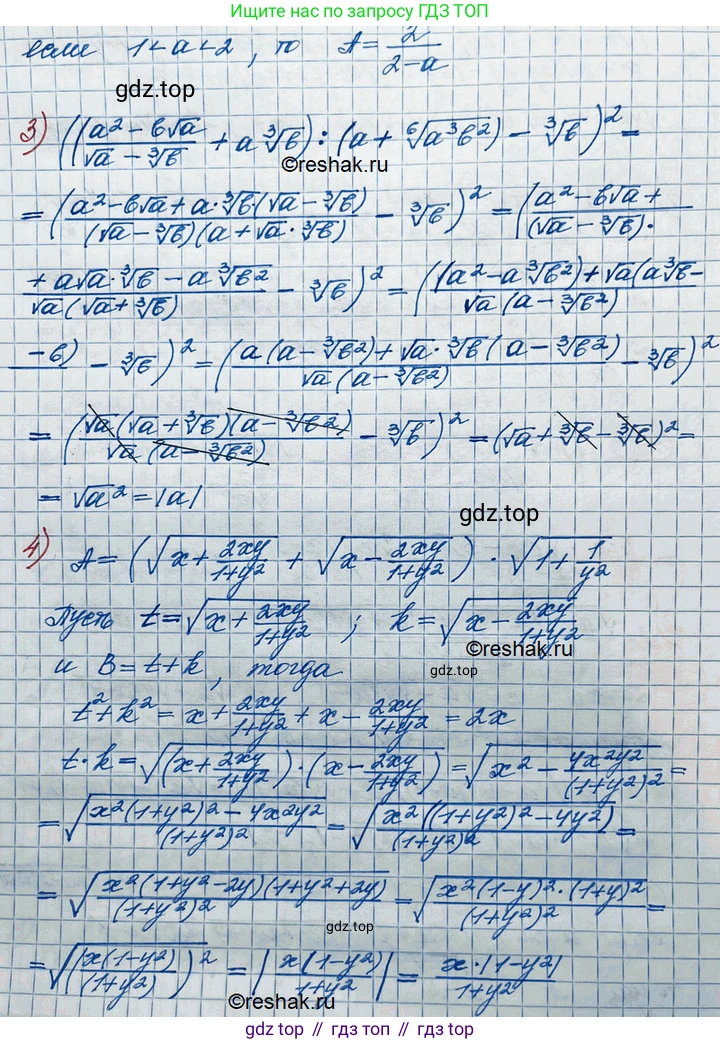 Ищите нас по запросу ГДЗ ТОП
если 1<a<2, то A = 2/(2-a)
gdz.top
3) ((a²-b√a)/(√a-∛b) + a∛b) : (a + ⁶√(a³b²)) - ∛b)² =
©reshak.ru
= ((a²-b√a+a·∛b(√a-∛b))/((√a-∛b)(a+√a·∛b)) - ∛b)² = ((a²-b√a+)/((√a-∛b)·
(+a√a·∛b - a∛b²)/(√a(√a+∛b)) - ∛b)² = (((a²-a∛b²)+√a(a∛b-)/(√a(a-∛b²))
-b) - ∛b)² = ((a(a-∛b²)+√a·∛b(a-∛b²))/(√a(a-∛b²)) - ∛b)²
= ((√a(√a+∛b)(a-∛b²))/(√a(a-∛b²)) - ∛b)² = (√a+∛b-∛b)² =
= √a² = |a|
gdz.top
4) A = (√(x+2xy/(1+y²)) + √(x-2xy/(1+y²))) · √(1+1/y²)
Пусть t = √(x+2xy/(1+y²)) ; k = √(x-2xy/(1+y²))
©reshak.ru
и B = t+k, тогда
gdz.top
t²+k² = x+2xy/(1+y²) + x-2xy/(1+y²) = 2x
t·k = √((x+2xy/(1+y²))·(x-2xy/(1+y²))) = √(x²-4x²y²/(1+y²)²) =
= √((x²(1+y²)²-4x²y²)/(1+y²)²) = √((x²((1+y²)²-4y²))/(1+y²)²) =
= √((x²(1+y²-2y)(1+y²+2y))/(1+y²)²) = √((x²(1-y)²·(1+y)²)/(1+y²)²) =
gdz.top
= √((x(1-y²)/(1+y²))²) = |x(1-y²)/(1+y²)| = x·|1-y²|/(1+y²)
©reshak.ru
gdz.top // гдз топ // gdz.top // гдз топ // gdz.top